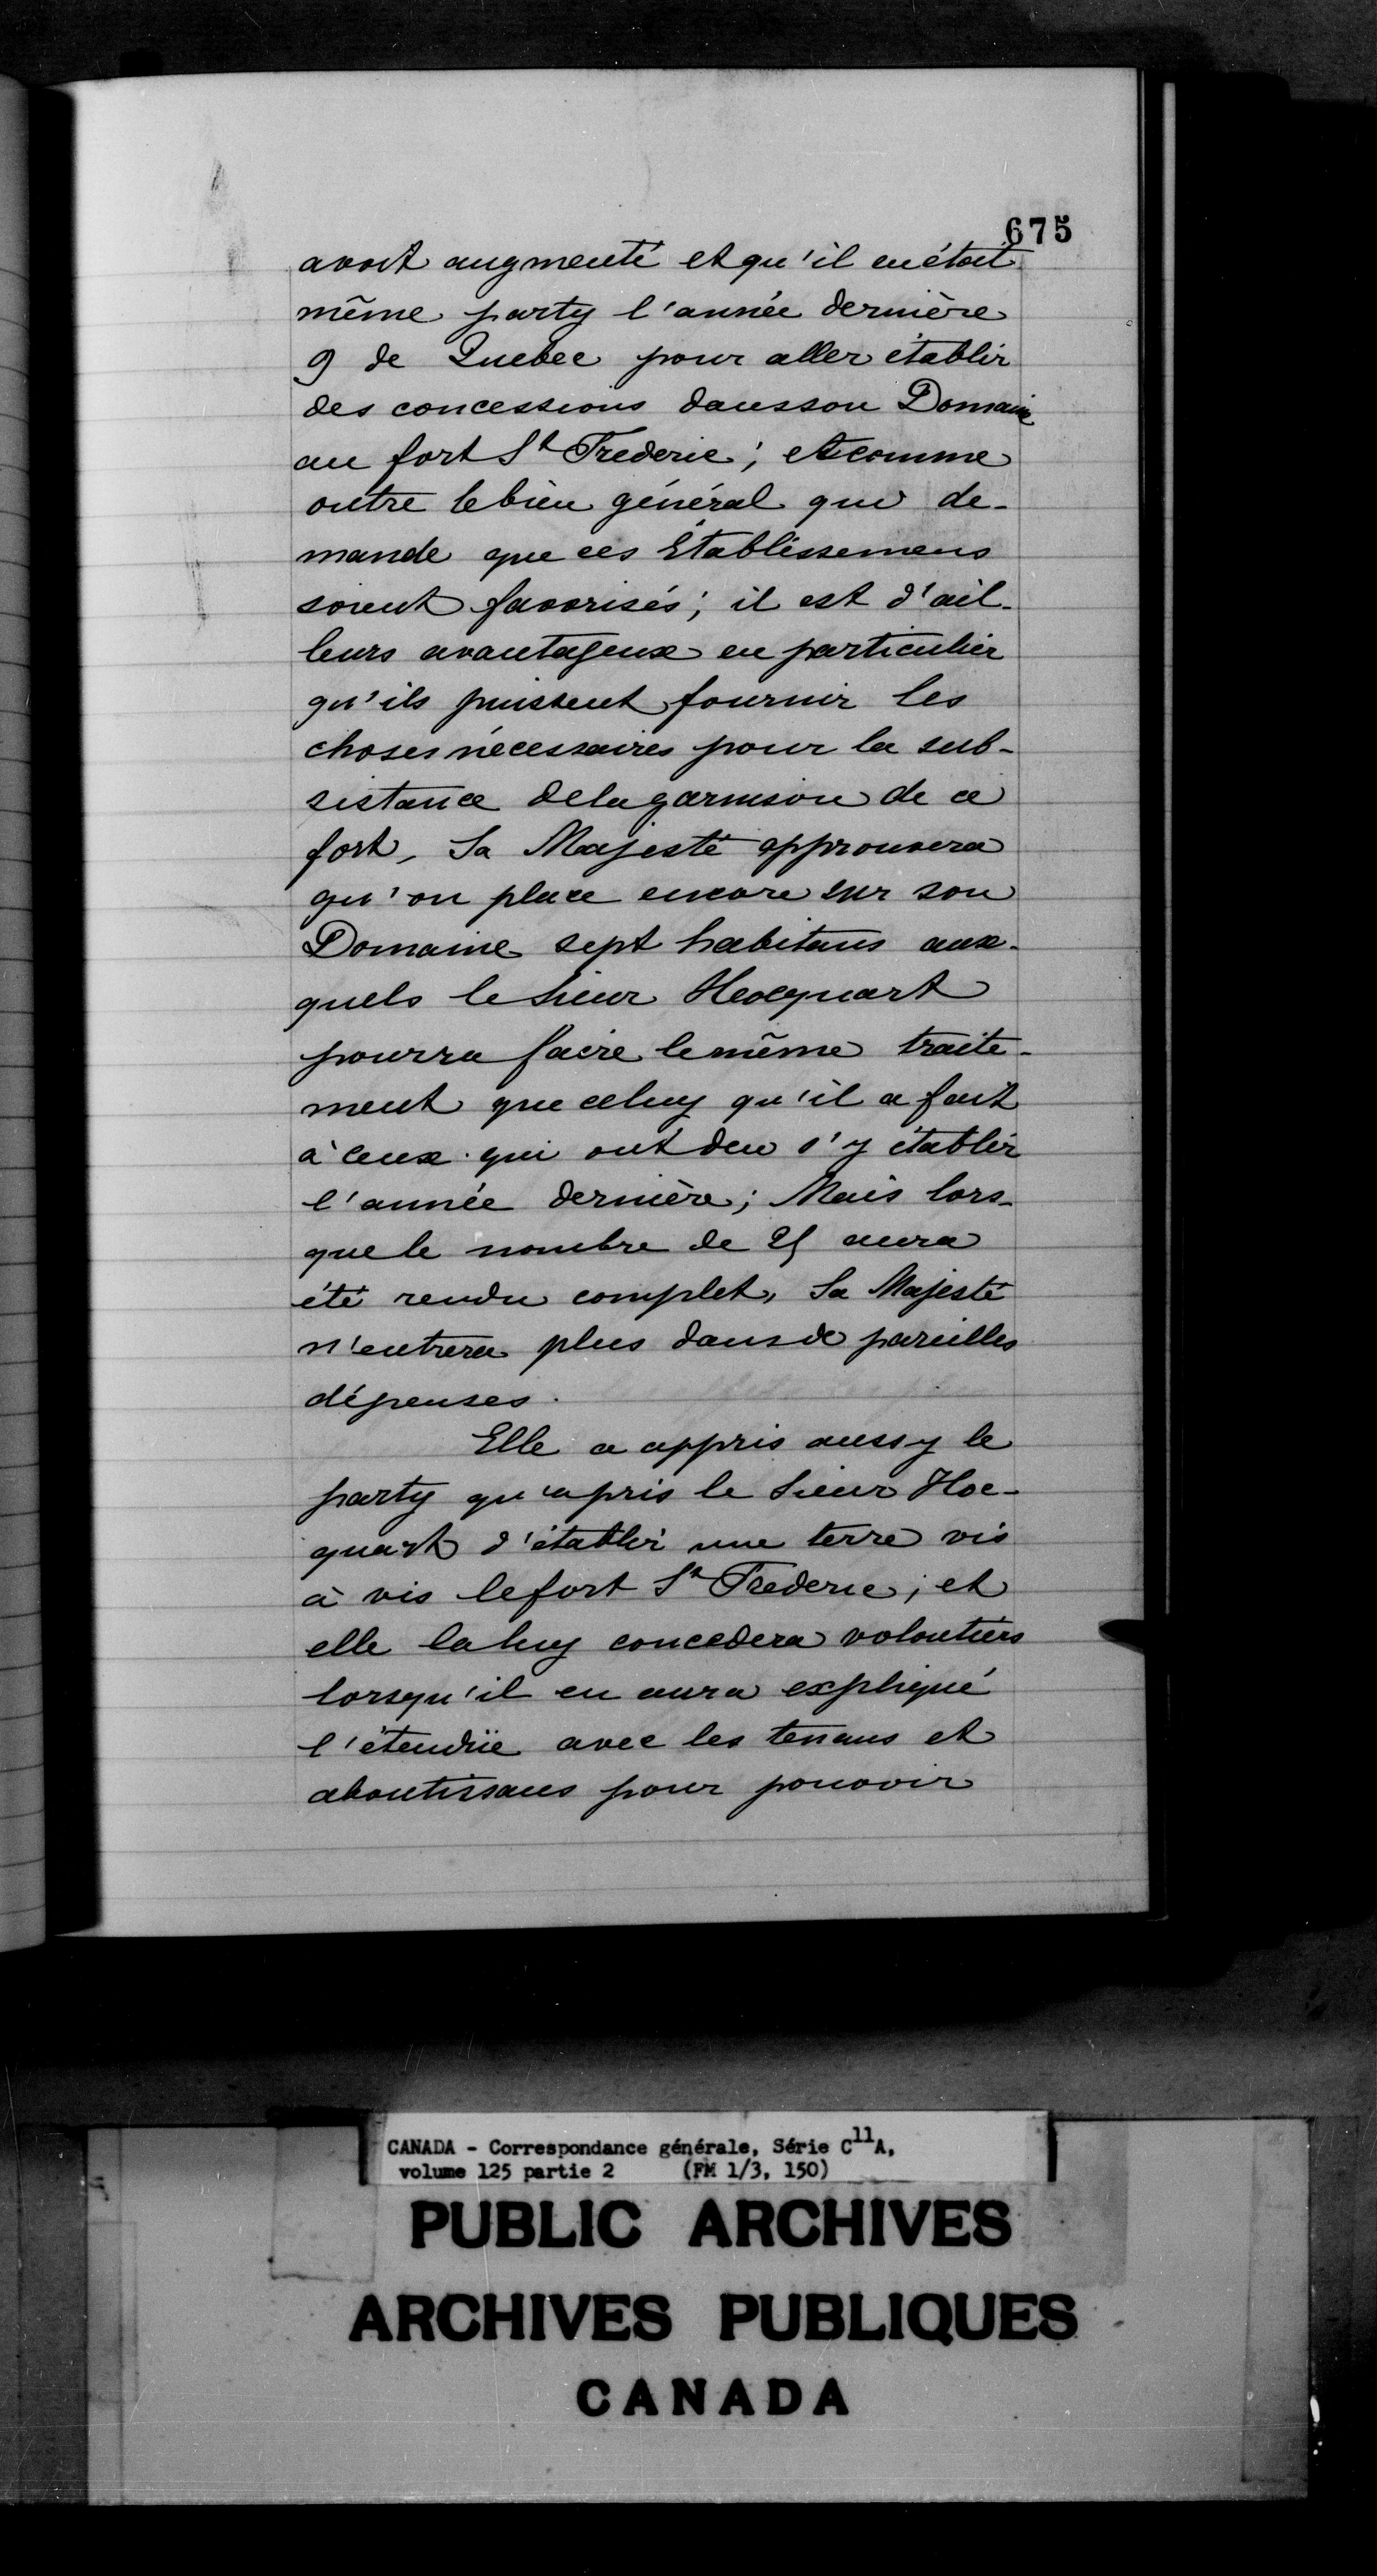 675
avoit augmenté et qu'il en étoit
même party l'année dernière
9 de Quebec pour aller établir
des concessions dans son Domaine
au fort St Frederic; et comme
outre le bien général qui de-
mande que ces Etablissemens
soient favorisés; il est d'ail-
leurs avantageux en particulier
qu'ils puissent fournir les
choses nécessaires pour la sub-
sistance de la garnison de ce
fort, Sa Majesté approuvera
qu'on place encore sur son
Domaine sept habitans aux-
quels le Sieur Hocquart
pourra faire le même traite-
ment que celuy qu'il a fait
à ceux qui ont deu s'y établir
l'année dernière; Mais lors-
que le nombre de aura
été rendu complet, Sa Majesté
n'entrera plus dans de pareilles
dépenses.
Elle a appris aussy le
party qu'a pris le Sieur Hoc-
quart d'établir une terre vis
à vis le fort St Frederic; et
elle la luy concedera volontiers
lorsqu'il en aura expliqué
l'étendüe avec les tenans et
aboutissans pour pouvoir
CANADA - Correspondance générale, Série C11A,
volume 125 partie 2 (FM 1/3, 150)
PUBLIC ARCHIVES
ARCHIVES PUBLIQUES
CANADA